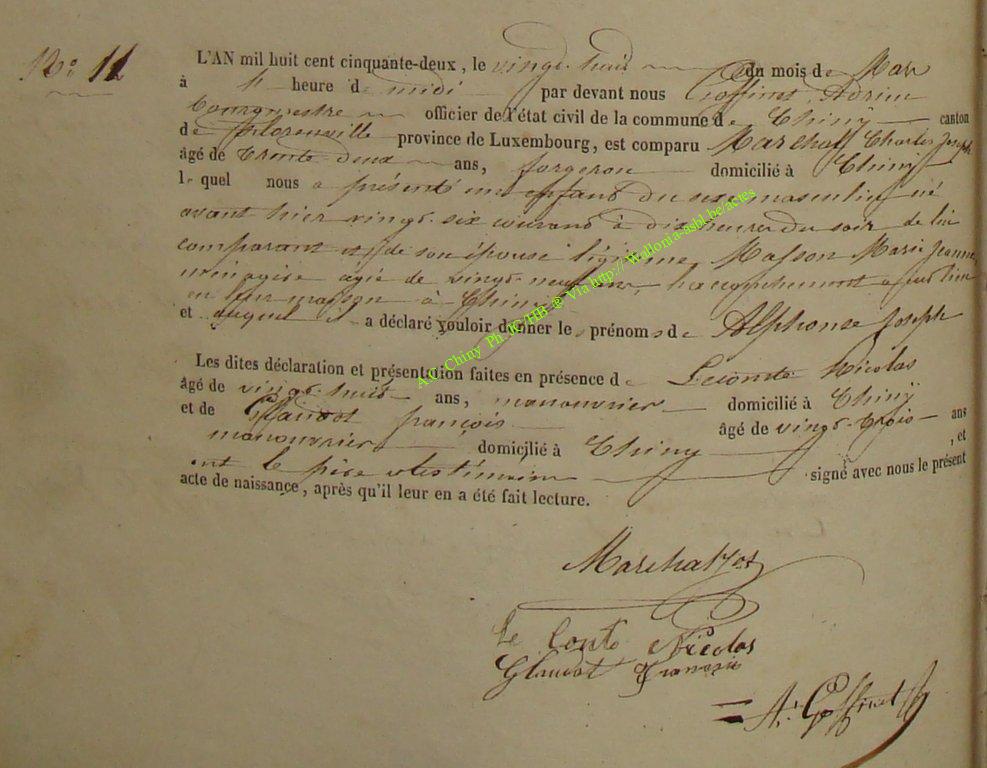 No 11
L'AN mil huit cent cinquante-deux, le vingt-huit du mois de Mars
à 4 heure de midi par devant nous Goffinet, Adrien
bourgmestre officier de l'état civil de la commune de Chiny canton
de florenville province de Luxembourg, est comparu Marchal Charles Joseph
âgé de trente-deux ans, forgeron domicilié à Chiny
lequel nous a présenté un enfant du sexe masculin né
avant hier vingt-six courant à dix heures du soir de lui
comparant et de son épouse légitime Masson Marie Jeanne
ménagère agée de vingt-neuf ans, l'accouchement a eu lieu
en leur maison à Chiny
et auquel il a déclaré vouloir donner les prénoms de Alphonse Joseph
Les dites déclaration et présentation faites en présence de Leconte Nicolas
âgé de vingt-huit ans, manouvrier domicilié à Chiny
et de Glaudot françois âgé de vingt-trois ans
manouvrier domicilié à Chiny , et
ont le père et témoins signé avec nous le présent
acte de naissance, après qu'il leur en a été fait lecture.
Marchal
Le Conte Nicolas
Glaudot Francois
A. Goffinet
AC Chiny Ph JC/HB @ Via http:// Wallonia-asbl.be/actes